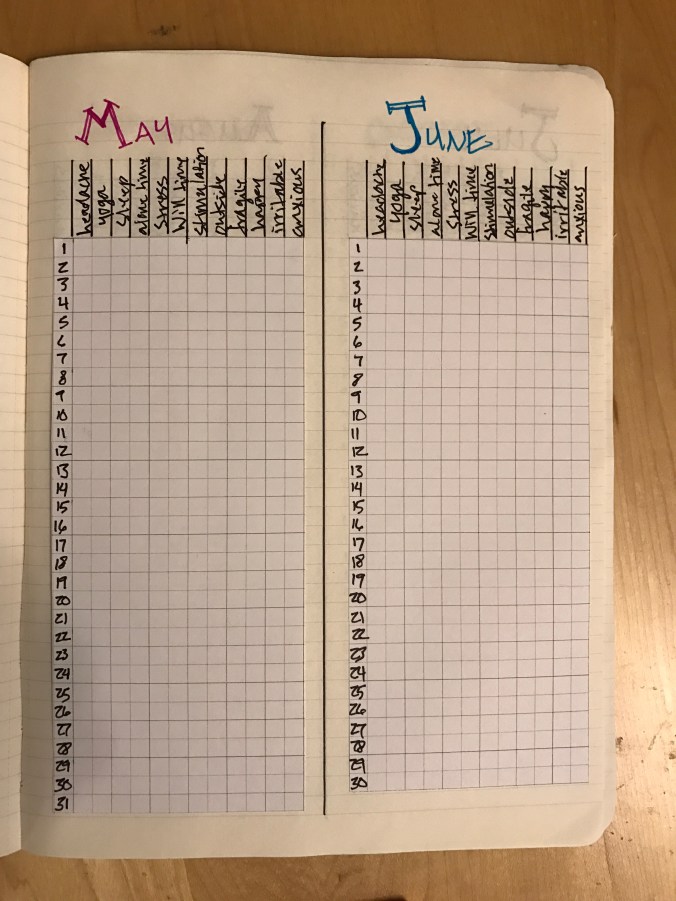 MAY
headache
yoga
sleep
alone time
stress
Will time
stimulation
outside
fragile
happy
irritable
anxious
1
2
3
4
5
6
7
8
9
10
11
12
13
14
15
16
17
18
19
20
21
22
23
24
25
26
27
28
29
30
31
JUNE
headache
yoga
sleep
alone time
stress
Will time
stimulation
outside
fragile
happy
irritable
anxious
1
2
3
4
5
6
7
8
9
10
11
12
13
14
15
16
17
18
19
20
21
22
23
24
25
26
27
28
29
30